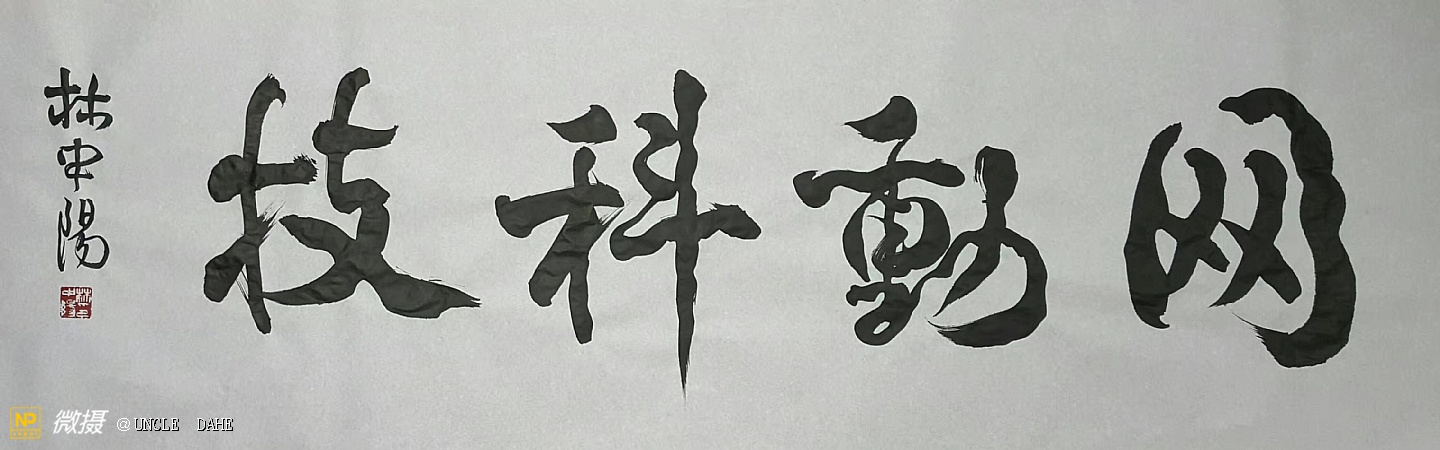 网動科技
林中陽
NP
微摄 @UNCLE DAHE